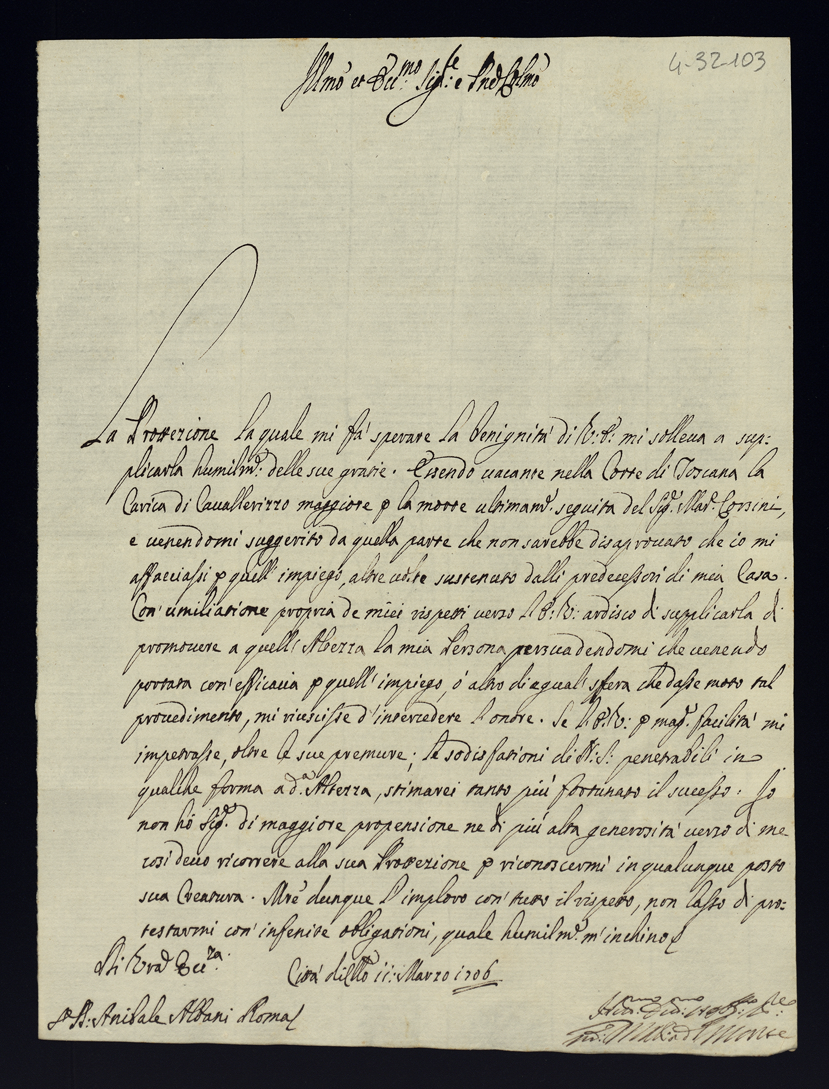 4-32-103
Illmo et Ecc.mo Sig.re e Pnē Colmo
La Protezione la quale mi fá sperare la benignitá di V: E: mi solleva a sup:
plicarla humilm.te: delle sue grazie. Essendo vacante nella Corte di Toscana la
Carica di Cavallerizzo maggiore p la morte ultimam.te seguita del Sig.r Mar. Corsini,
e venendomi suggerito da quella parte che non sarebbe disaprovato che io mi
affacciassi p quell' impiego, altre volte sustenuto dalli predecessori di mia Casa.
Con' umiliatione propria de miei rispetti verso l'E: V: ardisco di supplicarla di
promovere a quell' Altezza la mia Persona persuadendomi che venendo
portata con' efficacia p quell' impiego, ó altro di egual' sfera che dasse moto tal
provedimento, mi riuscisse d'intercedere l'onore. Se l'E: V: p mag.r facilitá mi
impetrasse, oltre le sue premure; le sodisfationi di N: S: penetrabili in
qualche forma a d.a Altezza, stimarei tanto piú fortunato il sucesso. Io
non hó Sig.re di maggiore propensione ne di piú alta generositá verso di me
cosí devo ricorrere alla sua Protezione p riconoscermi in qualunque posto
sua Creatura. Mre dunque l'imploro con' tutto il rispetto, non lasso di pro:
testarmi con' infenite obligationi, quale humilm.te m'inchino
Di Vrā Ecc.za
Cittá di 11: Marzo 1706
D: Anibale Albani Roma